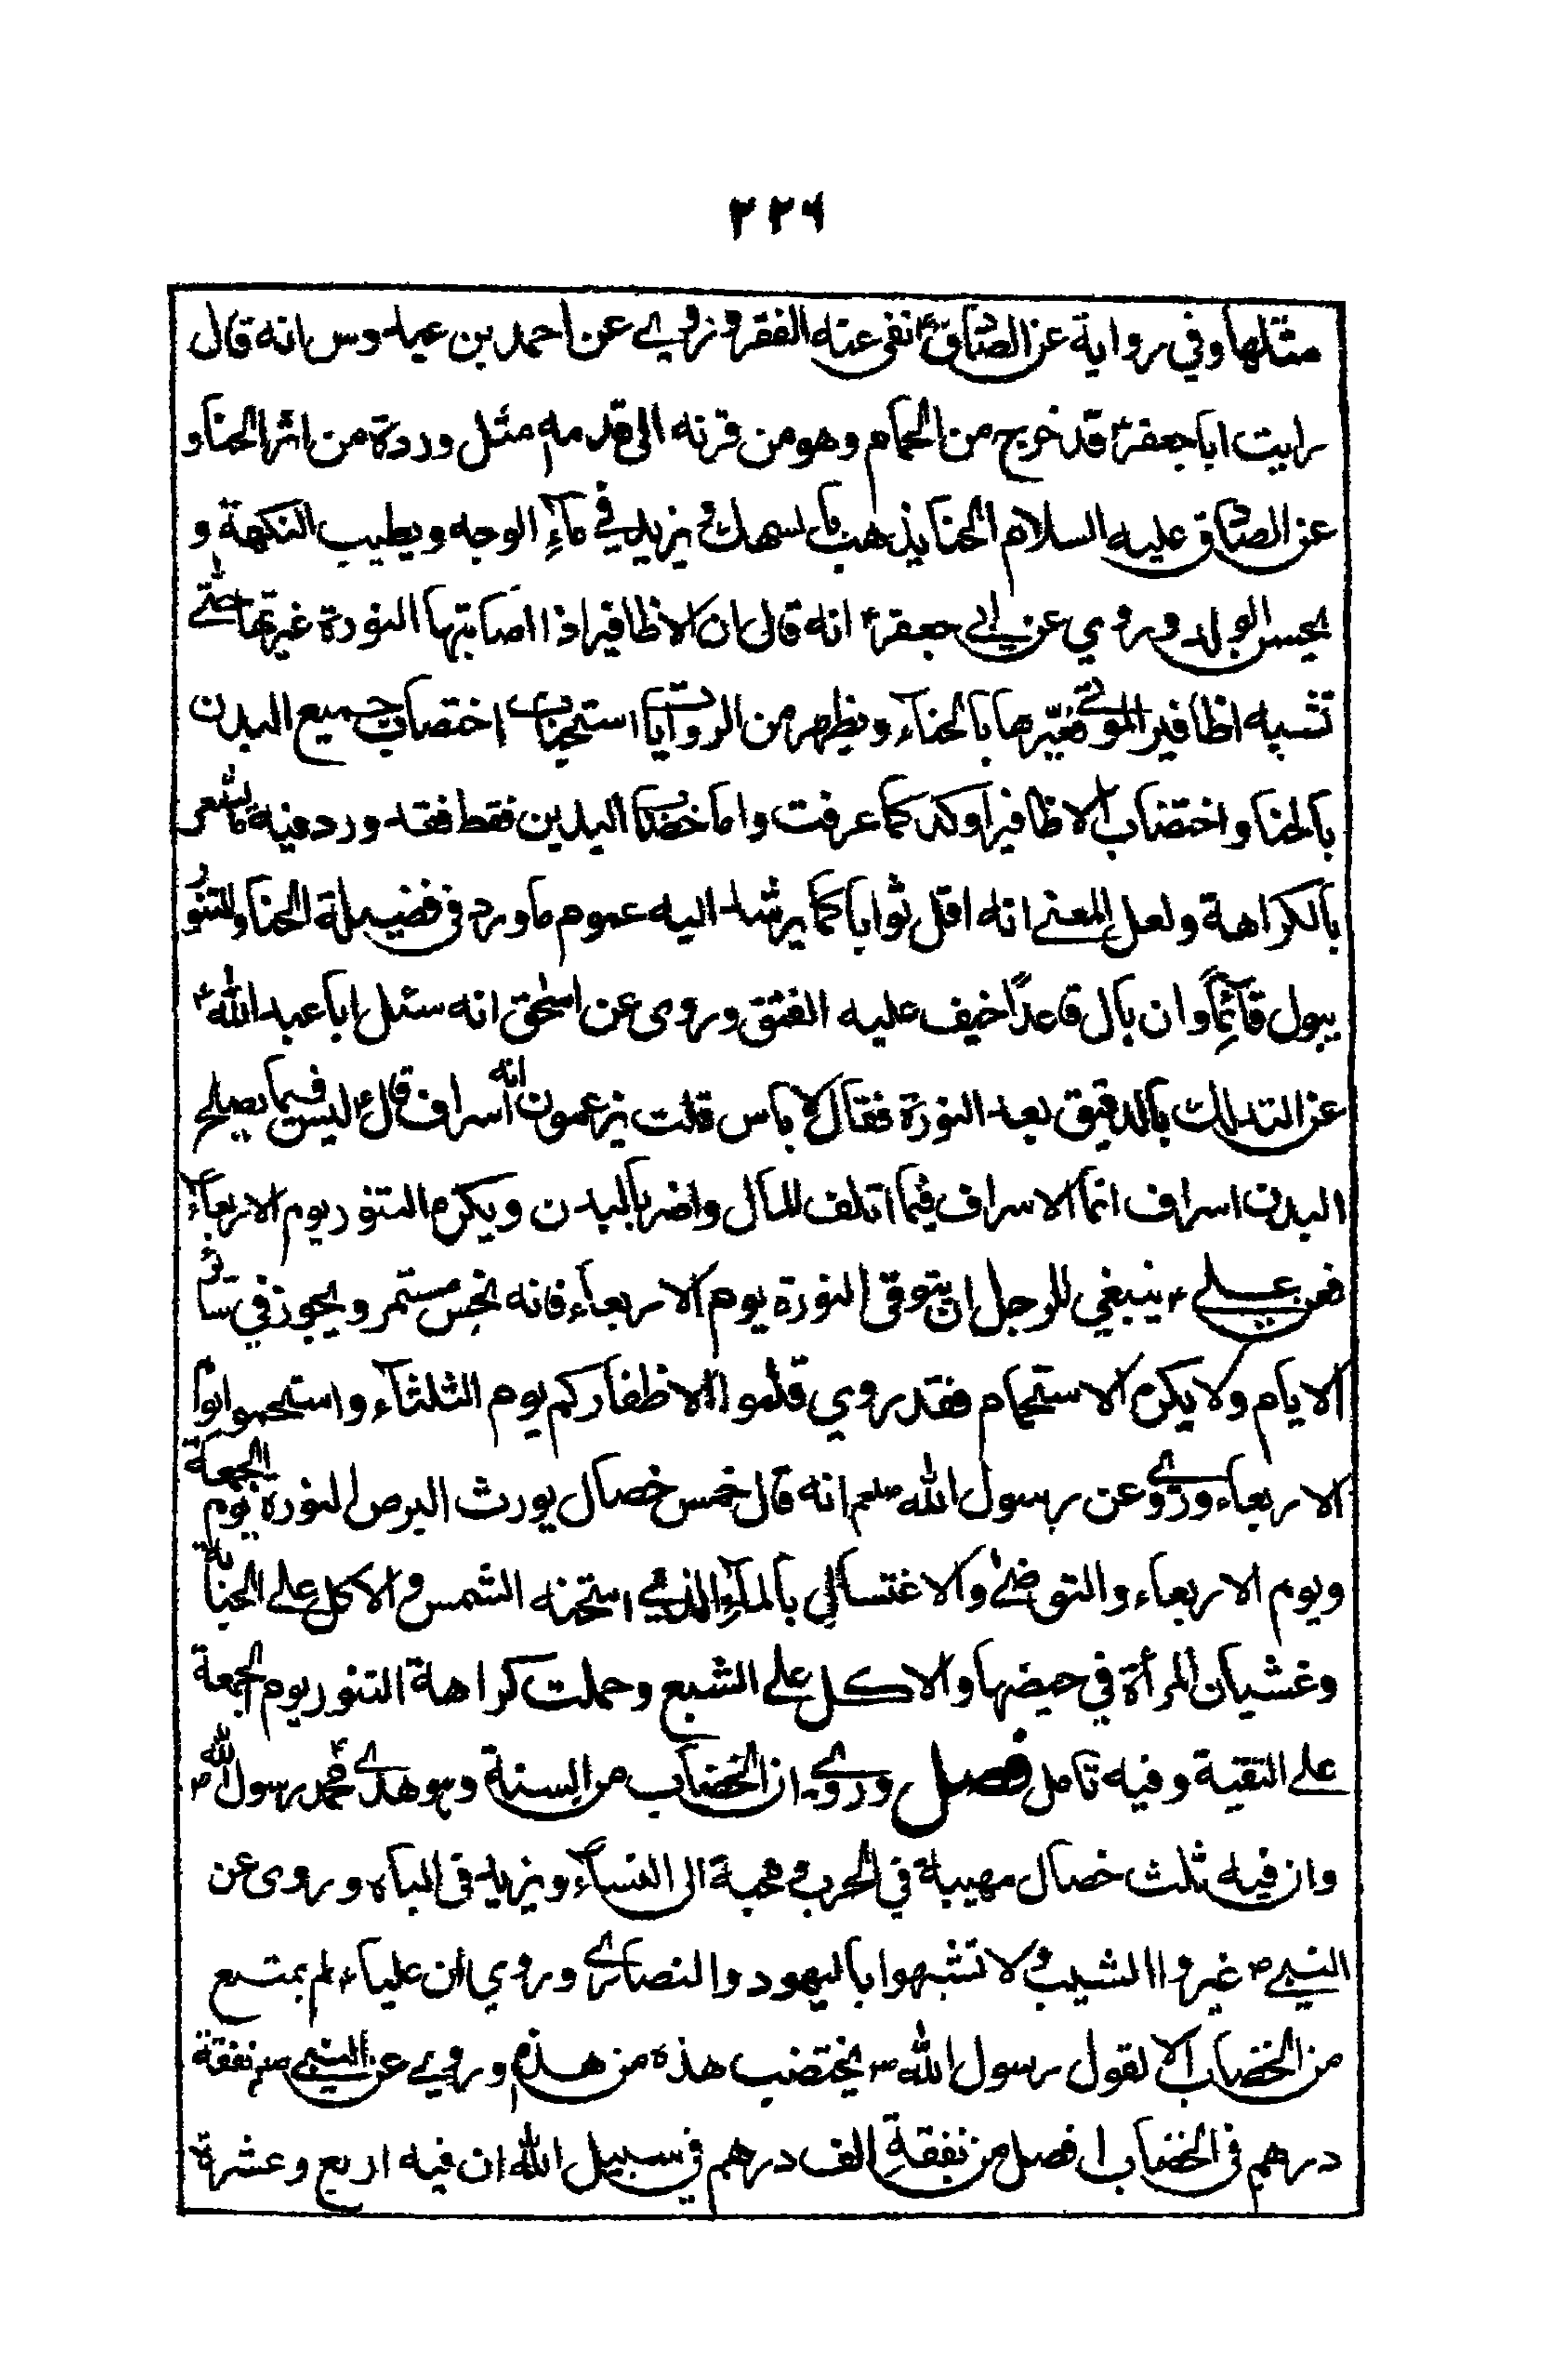 ٢٢٦
مثلها وفي رواية عن الصادق ع انفى عنه الفقر وروي عن احمد بن عبدوس انه قال
رايت ابا جعفر ع قد خرج من الحمام وهو من قرنه الى قدمه مثل وردة من اثر الحنا و
عن الصادق عليه السلام الحنا يذهب بالسهك و يزيد في ماء الوجه ويطيب النكهة و
يحسن الولد وروي عن ابي جعفر ع انه قال ان الاظافير اذا اصابتها النورة غيرتها حتى
تشبه اظافير الموتى فغيّرها بالحناء ويظهر من الروايات استحباب اختصاب جميع البدن
بالحنا واختضاب الاظافير اوكد كما عرفت واما خضاب اليدين فقط فقد ورد فيه ما يشعر
بالكراهة ولعل المعنى انه اقل ثوابا كما يرشد اليه عموم ما ورد في فضيلة الحنا والمتنور
يبول قائماً وان بال قاعداً خيف عليه الفتق وروى عن اسحق انه سئل ابا عبد الله ع
عن التدلك بالدقيق بعد النورة فقال لا باس قلت يزعمون انه اسراف قال ع ليس فيما يصلح
البدن اسراف انما الاسراف فيما اتلف المال واضر بالبدن ويكره التنور يوم الاربعاء
فعن علي ع ينبغي للرجل ان يتوقى النورة يوم الاربعاء فانه نحس مستمر ويجوز في سائر
الايام ولا يكره الاستحمام فقد روي قلموا الاظفاركم يوم الثلثاء واستحموا يوم
الاربعاء وروي عن رسول الله صلعم انه قال خمس خصال يورث البرص النورة يوم الجمعة
ويوم الاربعاء والتوضئ والاغتسال بالماء الذي استخنه الشمس والاكل على الجنابة
وغشيان المرأة في حيضها والاكل على الشبع وحملت كراهة التنور يوم الجمعة
على التقية وفيه تامل فصل وروي ان الخضاب من السنة وهو هدى محمد رسول الله ص
وان فيه ثلث خصال مهيبة في الحرب و محبة الى النساء ويزيد في الباه وروى عن
النبي ص غيروا الشيب و لا تشبهوا باليهود والنصارى وروي ان علياء ع لم يمتنع
من الخضاب الا لقول رسول الله ص يختضب هذه من هذه وروي عن النبي صلعم نفقة
درهم في الخضاب افضل من نفقة الف درهم في سبيل الله ان فيه اربع وعشرة